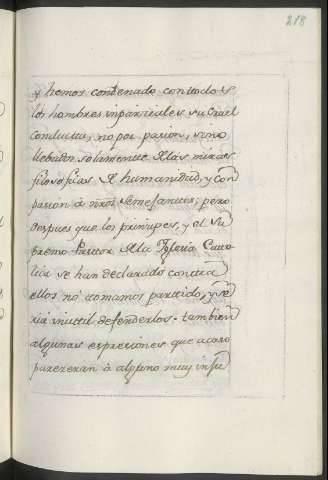 218
y hemos condenado con todos
los hombres inparciales su cruel
conducta, no por pasion, sino
llebados solamente de las miras
filosoficas de humanidad, y con
pasion à otros semejantes; pero
despues que los principes, y el su
premo Pastor de la Yglesia Cato
lica se han declarado contra
ellos no tomamos partido, y se
ria inutil defenderlos. tambien
algunas expresiones que acaso
pareceran à alguno muy insu